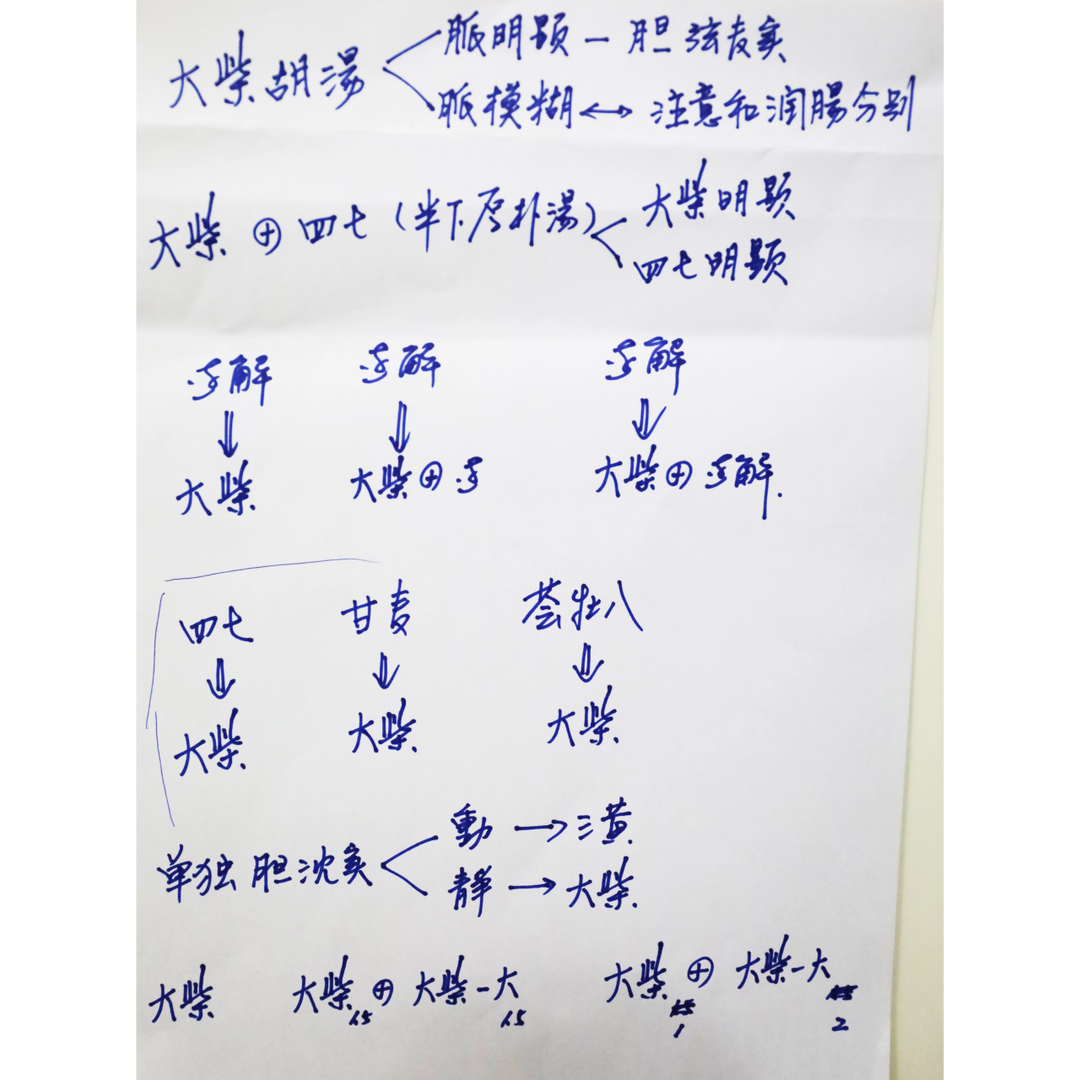 大柴胡湯 脈明顕 — 胆弦长实
脈模糊 ↔ 注意和润腸分别
大柴 ⊕ 四七 (半下厚朴湯) 大柴明顕
四七明顕
解 解 解
⇓ ⇓ ⇓
大柴 大柴 ⊕ 大柴 ⊕ 解.
四七 甘麦 苓牡八
⇓ ⇓ ⇓
大柴 大柴 大柴
单独胆沈实 動 → 三黄
静 → 大柴.
大柴 大柴 1.5 ⊕ 大柴-大 1.5 大柴 1 ⊕ 大柴-大 2